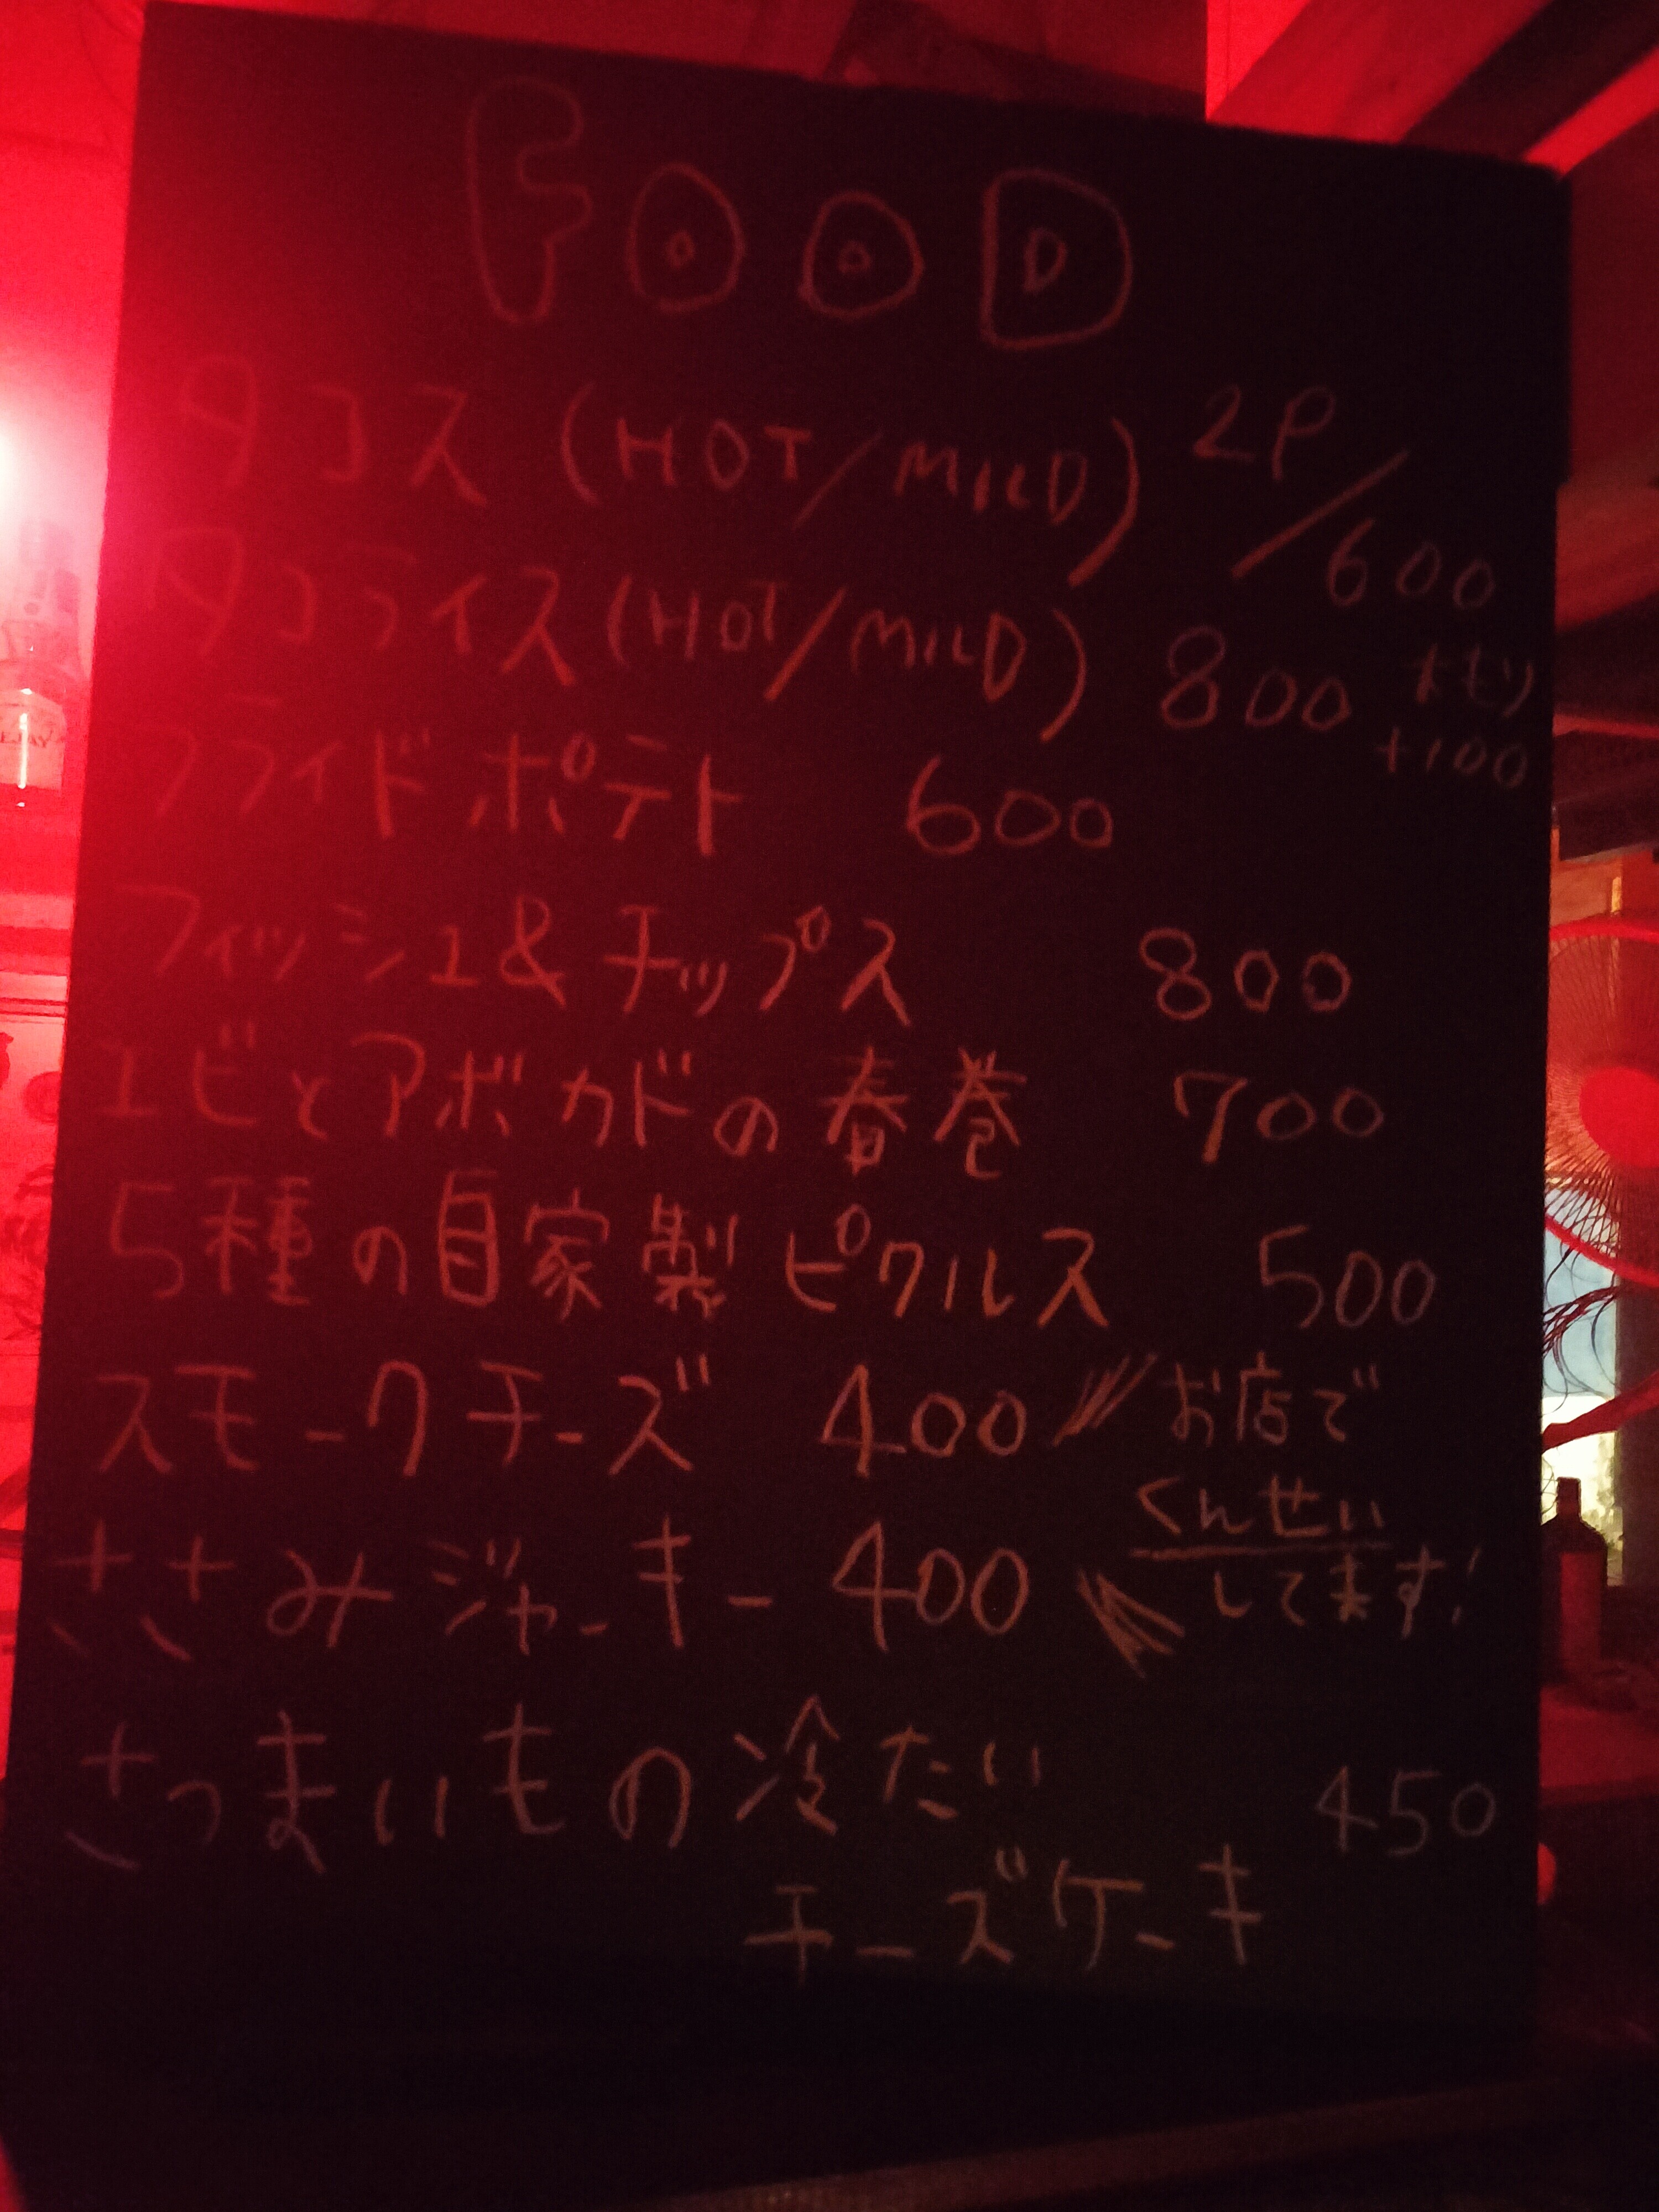 FOOD
タコス (HOT/MILD) 2P/600
タコライス (HOT/MILD) 800 大モリ
+100
フライドポテト 600
フィッシュ&チップス 800
エビとアボカドの春巻 700
5種の自家製ピクルス 500
スモークチーズ 400 お店で
くんせい
ささみジャーキー 400 してます!
さつまいもの冷たい 450
チーズケーキ